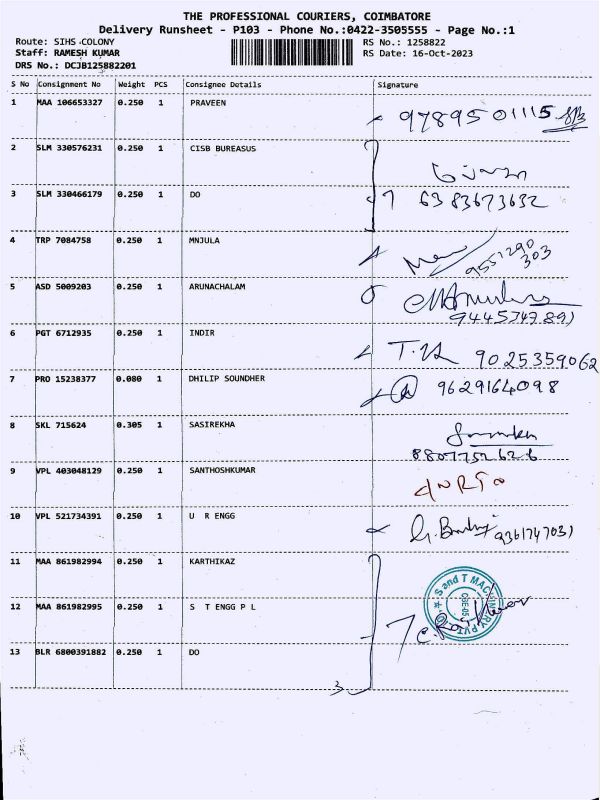 THE PROFESSIONAL COURIERS, COIMBATORE
Delivery Runsheet - P103 - Phone No.:0422-3505555 - Page No.:1
Route: SIHS COLONY RS No.: 1258822
Staff: RAMESH KUMAR RS Date: 16-Oct-2023
DRS No.: DCJB125882201
S No Consignment No Weight PCS Consignee Details Signature
1 MAA 106653327 0.250 1 PRAVEEN
9789501115
2 SLM 330576231 0.250 1 CISB BUREASUS
3 SLM 330466179 0.250 1 DO
6383673632
4 TRP 7084758 0.250 1 MNJULA
9551290
303
5 ASD 5009203 0.250 1 ARUNACHALAM
6 PGT 6712935 0.250 1 INDIR
9025359062
7 PRO 15238377 0.080 1 DHILIP SOUNDHER
9629164098
8 SKL 715624 0.305 1 SASIREKHA
8807752626
9 VPL 403048129 0.250 1 SANTHOSHKUMAR
10 VPL 521734391 0.250 1 U R ENGG
9361747031
11 MAA 861982994 0.250 1 KARTHIKAZ
12 MAA 861982995 0.250 1 S T ENGG P L
S and T MACHINERY PVT
13 BLR 6800391882 0.250 1 DO
3